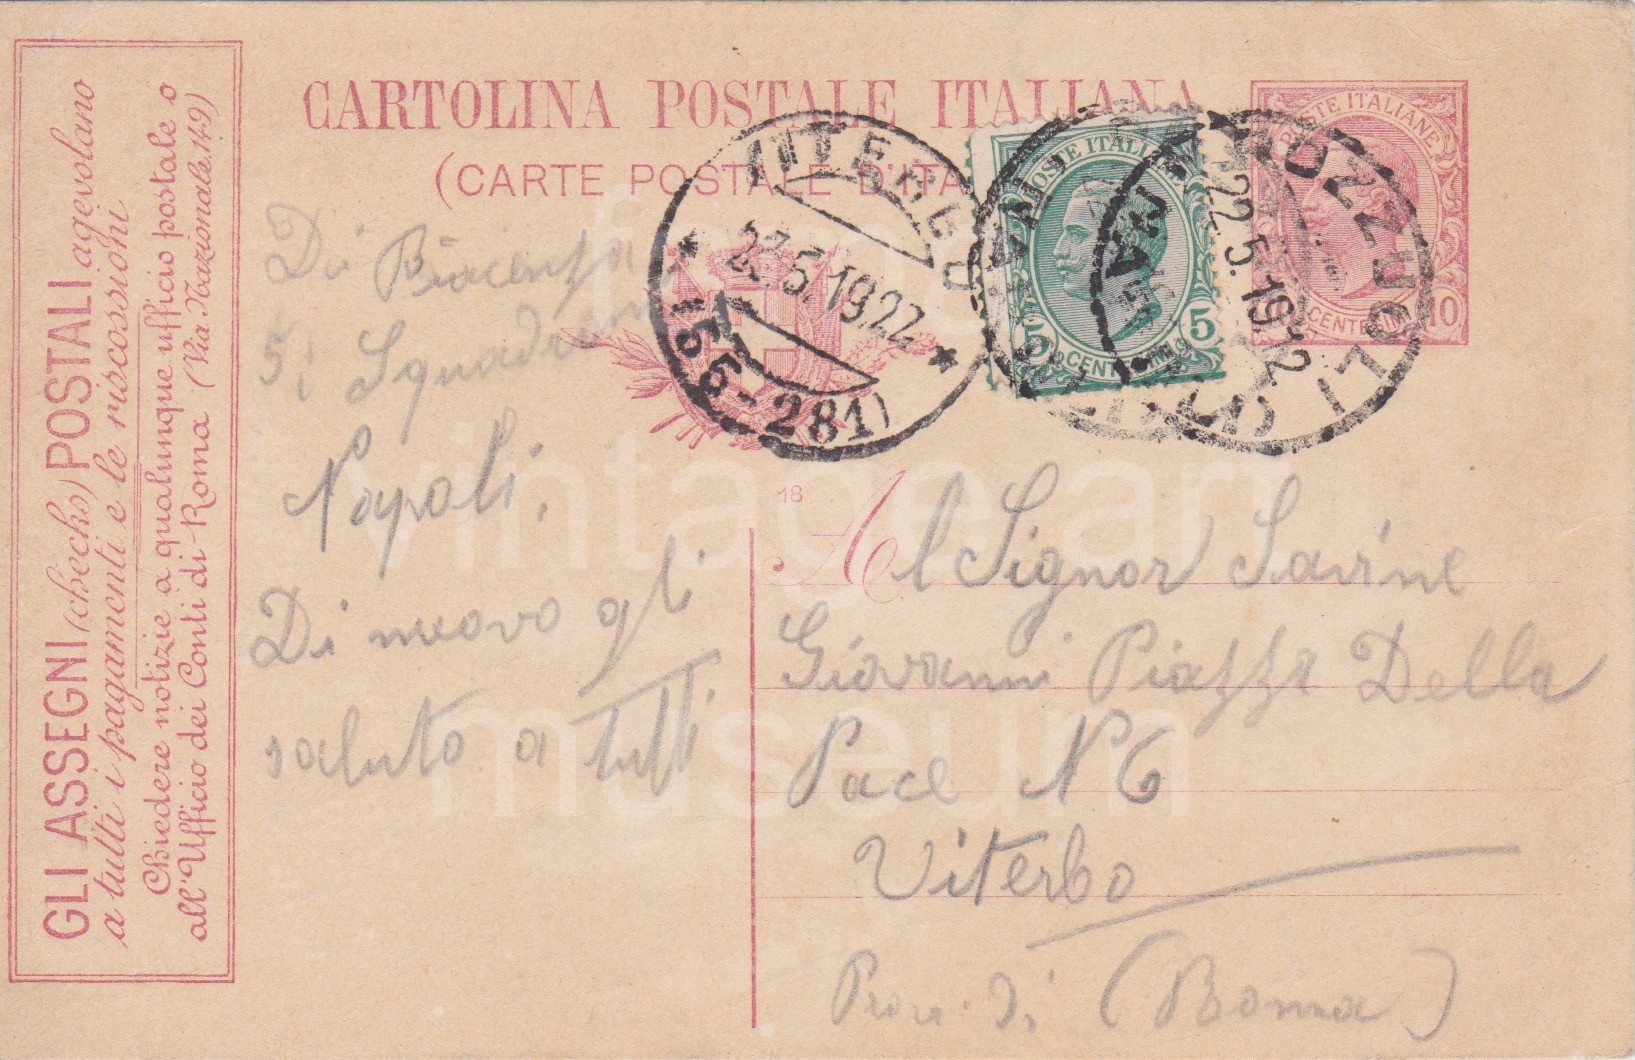 GLI ASSEGNI (checks) POSTALI agevolano
a tutti i pagamenti e le riscossioni
Chiedere notizie a qualunque ufficio postale o
all'Ufficio dei Conti di Roma (Via Nazionale.149)
CARTOLINA POSTALE ITALIANA
(CARTE POSTALE D'ITA
POSTE ITALIANE
CENTESIMI 10
POSTE ITALIANE
5 CENTESIMI 5
VITERBO
23.5.19.22
(56-281)
POZZUOLI
22.5.1912
Di Piacenza
5i Squadra
Napoli.
Di nuovo gli
saluto a tutti
18
Al Signor Savine
Giovanni Piazza Della
Pace N 6
Viterbo
Prov. Di (Roma)
vintage art
museum